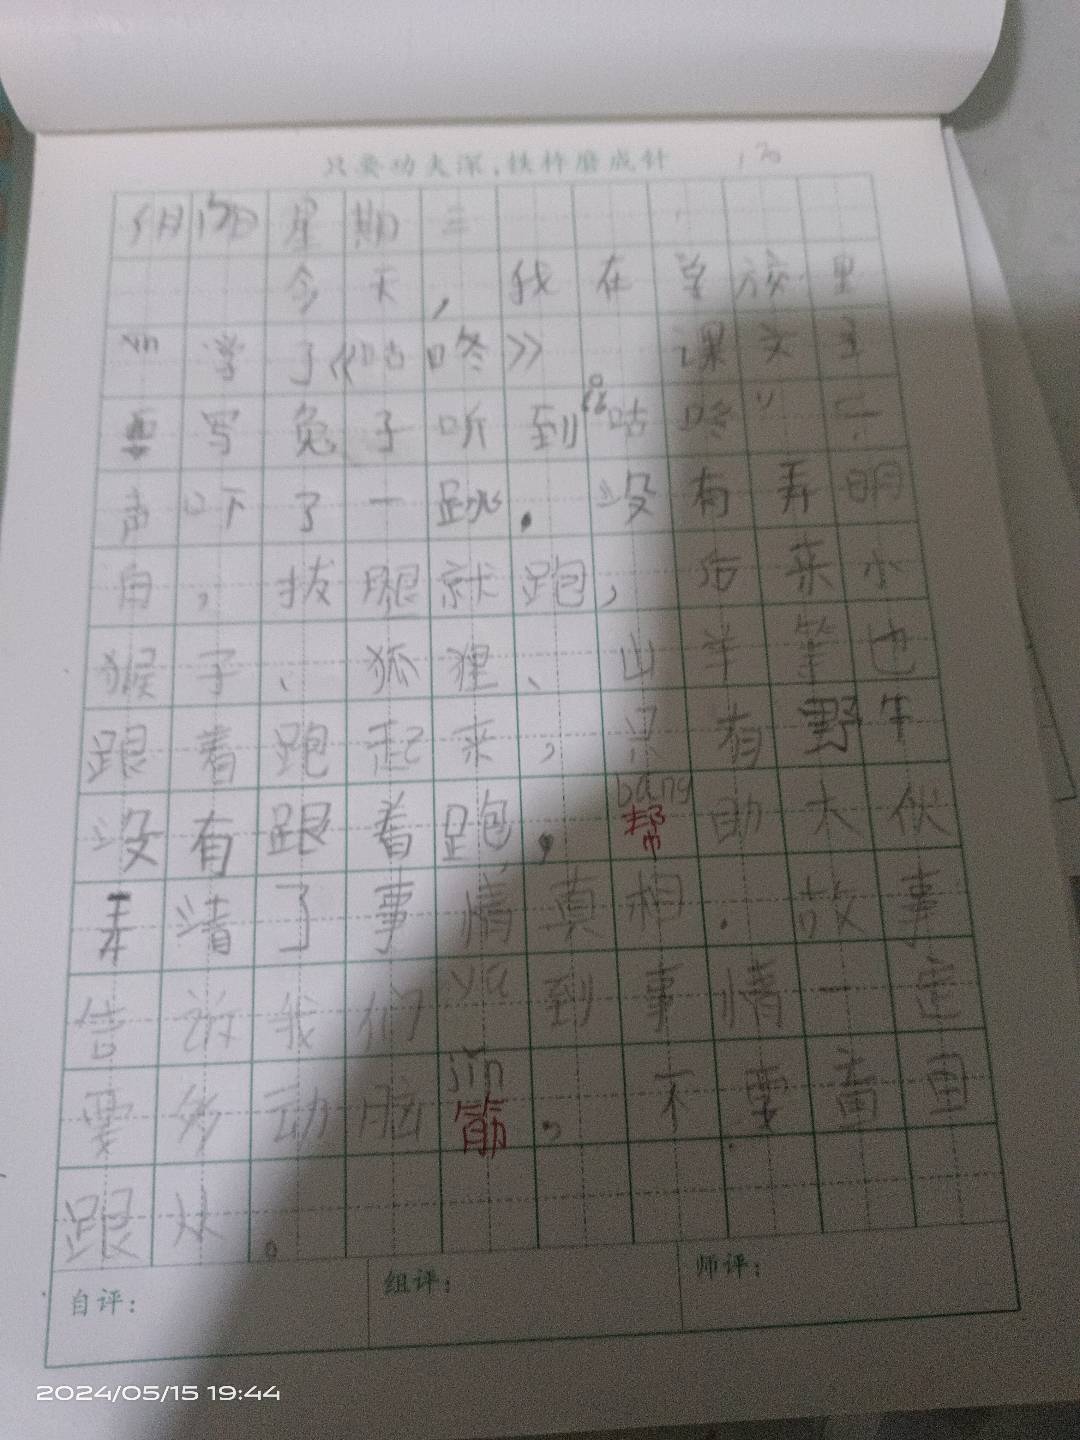 只要功夫深，铁杵磨成针 13
5月13日 星期三
今天，我在学校里
学了《咕咚》 课文主
要写兔子听到“咕咚”一
声吓了一跳。没有弄明
白，拔腿就跑，后来小
猴子、狐狸、山羊等也
跟着跑起来，只有野牛
没有跟着跑。bang帮助大伙
弄清了事情真相。故事
告诉我们 yu 到事情一定
要多动脑 jin 筋，不要盲目
跟从。
自评： 组评： 师评：
2024/05/15 19:44